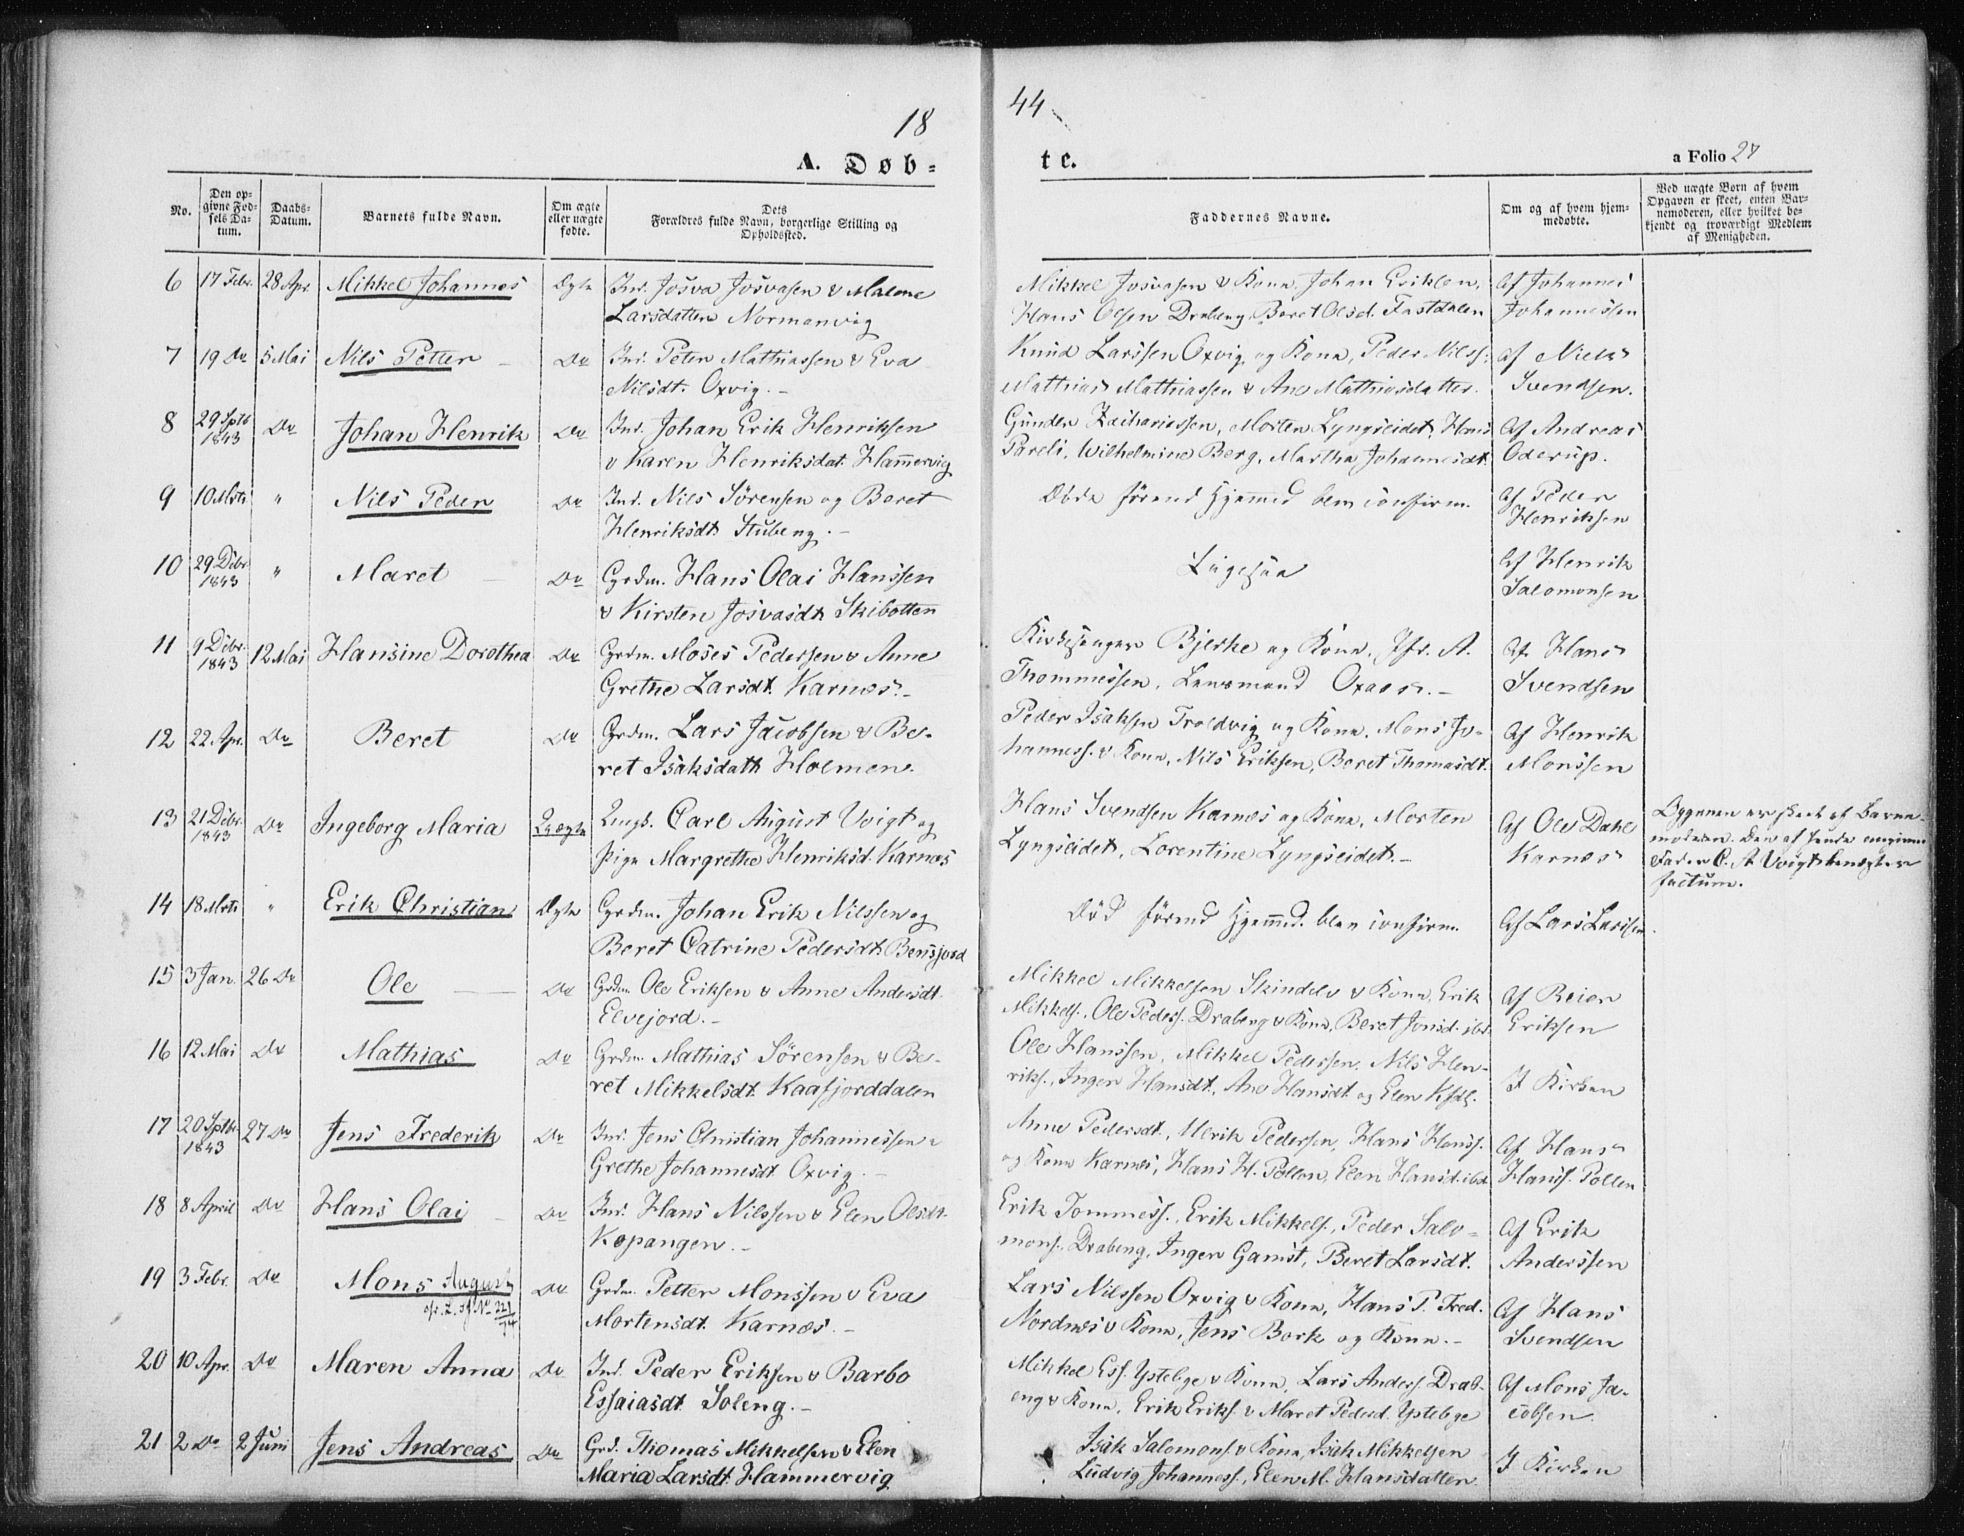 18
44
A. Døb=
te.
a Folio 27
No.
Den op=
givne Fød=
sels Da=
tum.
Daabs=
Datum.
Barnets fulde Navn.
Om ægte
eller uægte
fødte.
Dets
Forældres fulde Navn, borgerlige Stilling og
Opholdssted.
Faddernes Navne.
Om og af hvem hjem=
medøbte.
Ved uægte Børn af hvem
Opgaven er skeet, enten Bar=
nemoderen, eller hvilket be=
kjendt og troværdigt Medlem
af Menigheden.
6 17 Febr. 28 Apr. Mikkel Johannes Ægte Ind. Josva Josvasen & Malene
Larsdatter Normanvig
Mikkel Josvasen & Kone, Johan Eriksen,
Hans Olsen Drabeng, Beret Olsd. Fastdalen
Af Johannes
Johannessen
7 19 Do 5 Mai Nils Petter Do Ind. Peter Mathiassen & Eva
Nilsdt. Oxvig.
Knud Larssen Oxvig og Kone, Peder Nilss.
Mathias Mathiassen & Ane Mathiasdatter.
Af Niels
Svendsen.
8 29 Sptb 1843 Do Johan Henrik Do Ind. Johan Erik Henriksen
& Karen Henriksdat. Hamervig
Gunder Zachariassen, Morten Lyngseidet, Hans
Pareli, Wilhelmine Berg, Martha Johannesdt.
Af Andreas
Oderup.
9 10 Mrts " Nils Peder Do Ind. Nils Sörensen og Beret
Henriksdt. Stubeng.
Døde førend Hjemmed. blev confirm.
Af Peder
Henriksen
10 29 Dcbr 1843 " Maret Do Grdm. Hans Olai Hanssen
& Kirsten Josvasdt. Skibotten
Ligesaa
Af Henrik
Salomonsen
11 9 Dcbr. 1843 12 Mai Hansine Dorothea Do Grdm. Moses Pedersen & Anne
Grethe Larsdt. Karnæs.
Kirkesanger Bjerke og Kone, Jfr. A.
Thommessen, Lensmand Oxaas.
Af Hans
Svendsen
12 22 Apr. Do Beret Do Grdm. Lars Jacobsen & Be-
ret Isaksdatt. Holmen.
Peder Isaksen Troldvig og Kone, Mons Jo-
hanness. & Kone, Nils Eriksen, Beret Thomasdt.
Af Henrik
Monssen
13 21 Dcbr. 1843 Do Ingeborg Maria Uægte Ungk. Carl August Voigt og
Pige Margrethe Henriksd. Karnæs
Hans Svendsen Karnæs og Kone, Morten
Lyngseidet, Lorentine Lyngseidet.
Af Ole Dahl
Karnæs
Opgaven er skeet af Barne-
moderen. Den af hende angivne
Fader C. A. Voigt benægter
factum.
14 18 Mrts " Erik Christian Ægte Grdm. Johan Erik Nilssen og
Beret Catrine Pedersdt. Bensjord
Död førend Hjemmed. blev confirm.
Af Lars Larssen.
15 3 Jan. 26 Do Ole Do Grdm. Ole Eriksen & Anne Andersdt.
Elvejord.
Mikkel Mikkelsen Skindelv & Kone, Erik
Mikkels., Ole Peders. Drabeng & Kone, Beret Jonsd. ibd.
Af Reier
Eriksen
16 12 Mai Do Mathias Do Grdm. Mathias Sörensen & Be-
ret Mikkelsdt. Kaafjorddalen
Ole Hanssen, Mikkel Pederssen, Nils Hen-
riks., Inger Hansdt., Ane Hansdt. og Elen Kfdl.
I Kirken
17 20 Sptbr 1843 27 Do Jens Frederik Do Ind. Jens Christian Johannessen &
Grethe Johannesdt. Oxvig.
Anne Pedersdt., Ulrik Pedersen, Hans Hanss.
og Kone Karnæs, Hans H. Pollen, Elen Hansd. ibd.
Af Hans
Hanss. Pollen
18 8 April Do Hans Olai Do Ind. Hans Nilssen & Elen Olsdt.
Kopangen.
Erik Tommess., Erik Mikkels., Peder Salo-
mons. Drabeng, Inger Gamst, Beret Larsdt.
Af Erik
Anderssen
19 3 Febr. Do Mons August Do Grdm. Petter Monssen & Eva
Mortensdt. Karnæs.
Lars Nilssen Oxvig & Kone, Hans P. Fred.
Nordnæs & Kone, Jens Bork og Kone.
Af Hans
Svendsen
20 10 Apr. Do Maren Anna Do Ind. Peder Eriksen & Barbo
Essaiasdt. Soleng.
Mikkel Ess. Ystebye & Kone, Lars Anders. Drab-
eng & Kone, Erik Eriks. & Maret Pedersd. Ystebye
Af Mons Ja-
cobsen.
21 2 Do 2 Juni Jens Andreas Do Grd. Thomas Mikkelsen & Elen
Maria Larsdt. Hammervig
Isak Salomons. & Kone, Isak Mikkelsen
Ludvig Johanness., Elen M. Hansdatter.
I Kirken